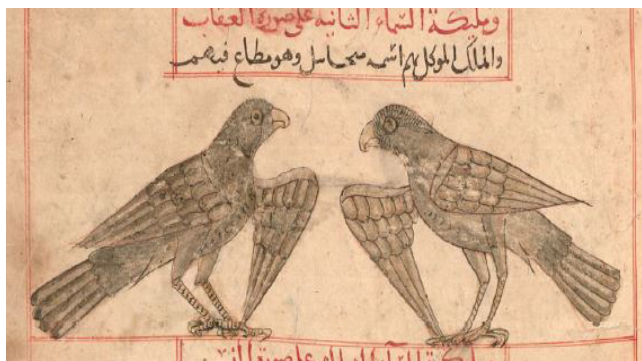 وملىكة السماء الثانية على صورة العقاب
والملك الموكل بهم اسمه ميحاىيل وهو مطاع فيهم